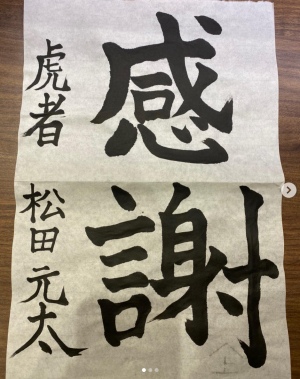 感謝
虎者
松田元太